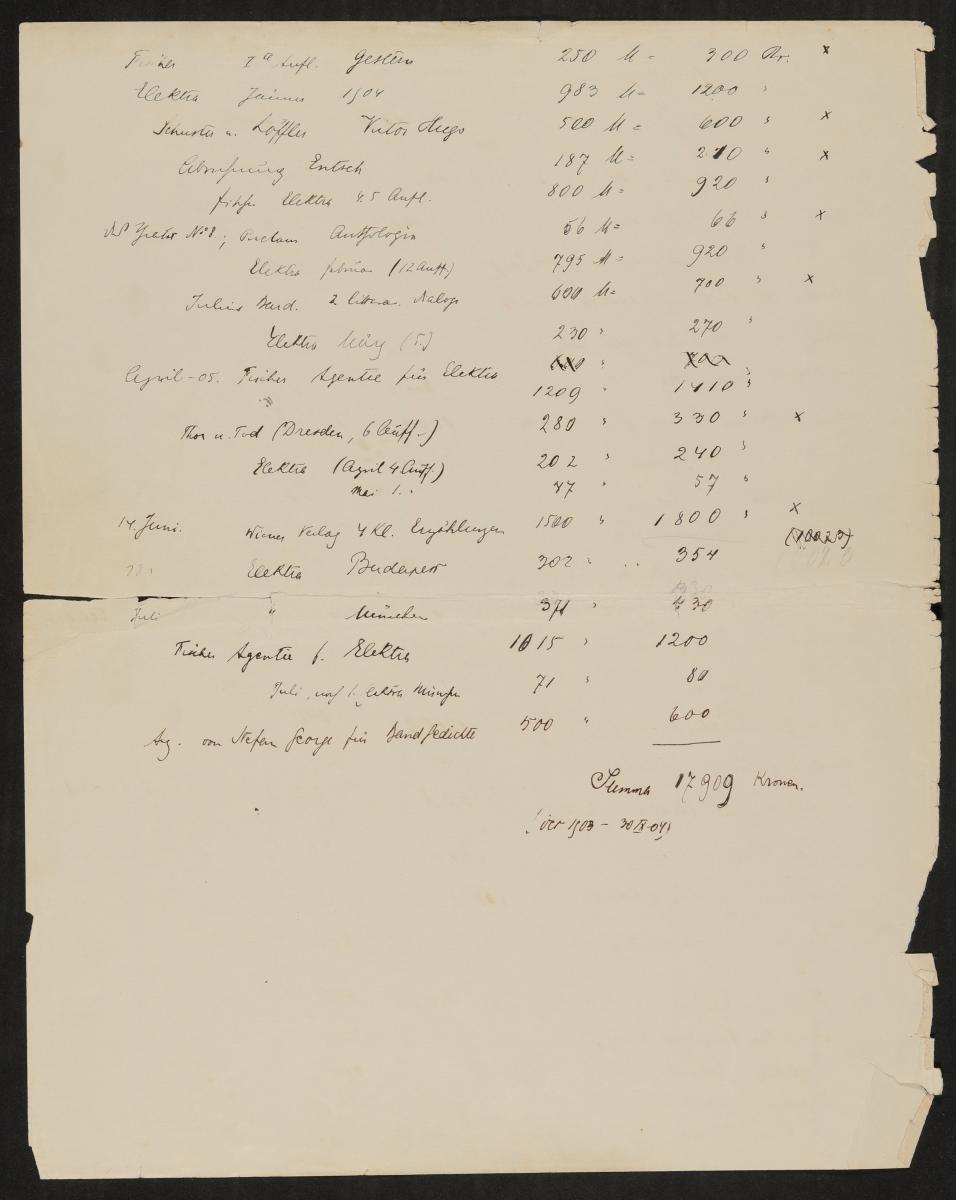 Fischer IIa Aufl. Gestern 250 M = 300 Kr. x
Elektra Jänner 1904 983 M = 1200 "
Schuster u. Löffler Victor Hugo 500 M = 600 " x
Entsch 187 M = 210 " x
Elektra 4. 5 Aufl. 800 M = 920 "
No 8.; Anthologie 56 M = 66 " x
Elektra Februar (12 Auff.) 795 M = 920 "
Julius Bard. 2 600 M = 700 " x
Elektra März (5.) 230 " 270 "
April-05. Fischer Agentie für Elektra
1209 " 1410 "
Thor u. Tod (Dresden, 6 Auff.) 280 " 330 " x
Elektra (April 4 Auff.) 202 " 240 "
Mai 1. " 57 "
14. Juni. Wiener Verlag 4 Kl. Erzählungen 1500 " 1800 " x
Elektra Budapest 302 " 354
Juli " München 371 " 430
Fischer Agentie f. Elektra 1015 " 1200
Juli, noch 1. Elektra München 71 " 80
von George für Band Gedichte 500 " 600
Summa 17909 Kronen.